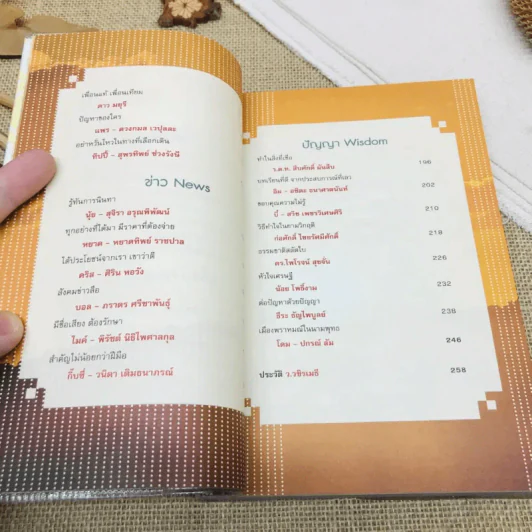 เพื่อนแท้ เพื่อนเทียม
ดาว มยุรี
ปัญหาของใคร
แพร - ดวงกมล เวปุลละ
อย่าหวั่นไหวในทางที่เลือกเดิน
ทิปปี้ - สุพรทิพย์ ช่วงรังษี
ข่าว News
รู้ทันการนินทา
นุ้ย - สุจิรา อรุณพิพัฒน์
ทุกอย่างที่ได้มา มีราคาที่ต้องจ่าย
พยาต - พยาตทิพย์ ราชปาล
ได้ประโยชน์จากเรา เขาว่าดี
คริส - ศิริน หอวัง
สังคมข่าวลือ
บอล - ภราดร ศรีชาพันธุ์
มีชื่อเสียง ต้องรักษา
ไมค์ - พิรัชต์ นิธิไพศาลกุล
สำคัญไม่น้อยกว่าฝีมือ
กิ๊บซี่ - วนิดา เติมธนาภรณ์
ปัญญา Wisdom
ทำในสิ่งที่เชื่อ
ร.ต.ท. สืบศักดิ์ ผันสืบ 196
บทเรียนที่ดี จากประสบการณ์ที่เลว
พิม - อชิตะ ธนาศาสตนันท์ 202
ขอบคุณความไม่รู้
บี้ - สวิช เพชรวิเศษศิริ 210
วิธีทำใจในยามวิกฤติ
ก่อศักดิ์ ไชยรัศมีศักดิ์ 218
ธรรมชาติผลัดใบ
ดร.ไพโรจน์ สุขจั่น 226
หัวใจเศรษฐี
น้อย โพธิ์งาม 232
ต่อปัญหาด้วยปัญญา
ธีระ ธัญไพบูลย์ 238
เมืองพราหมณ์ในนามพุทธ
โดม - ปกรณ์ ลัม 246
ประวัติ ว.วชิรเมธี 258